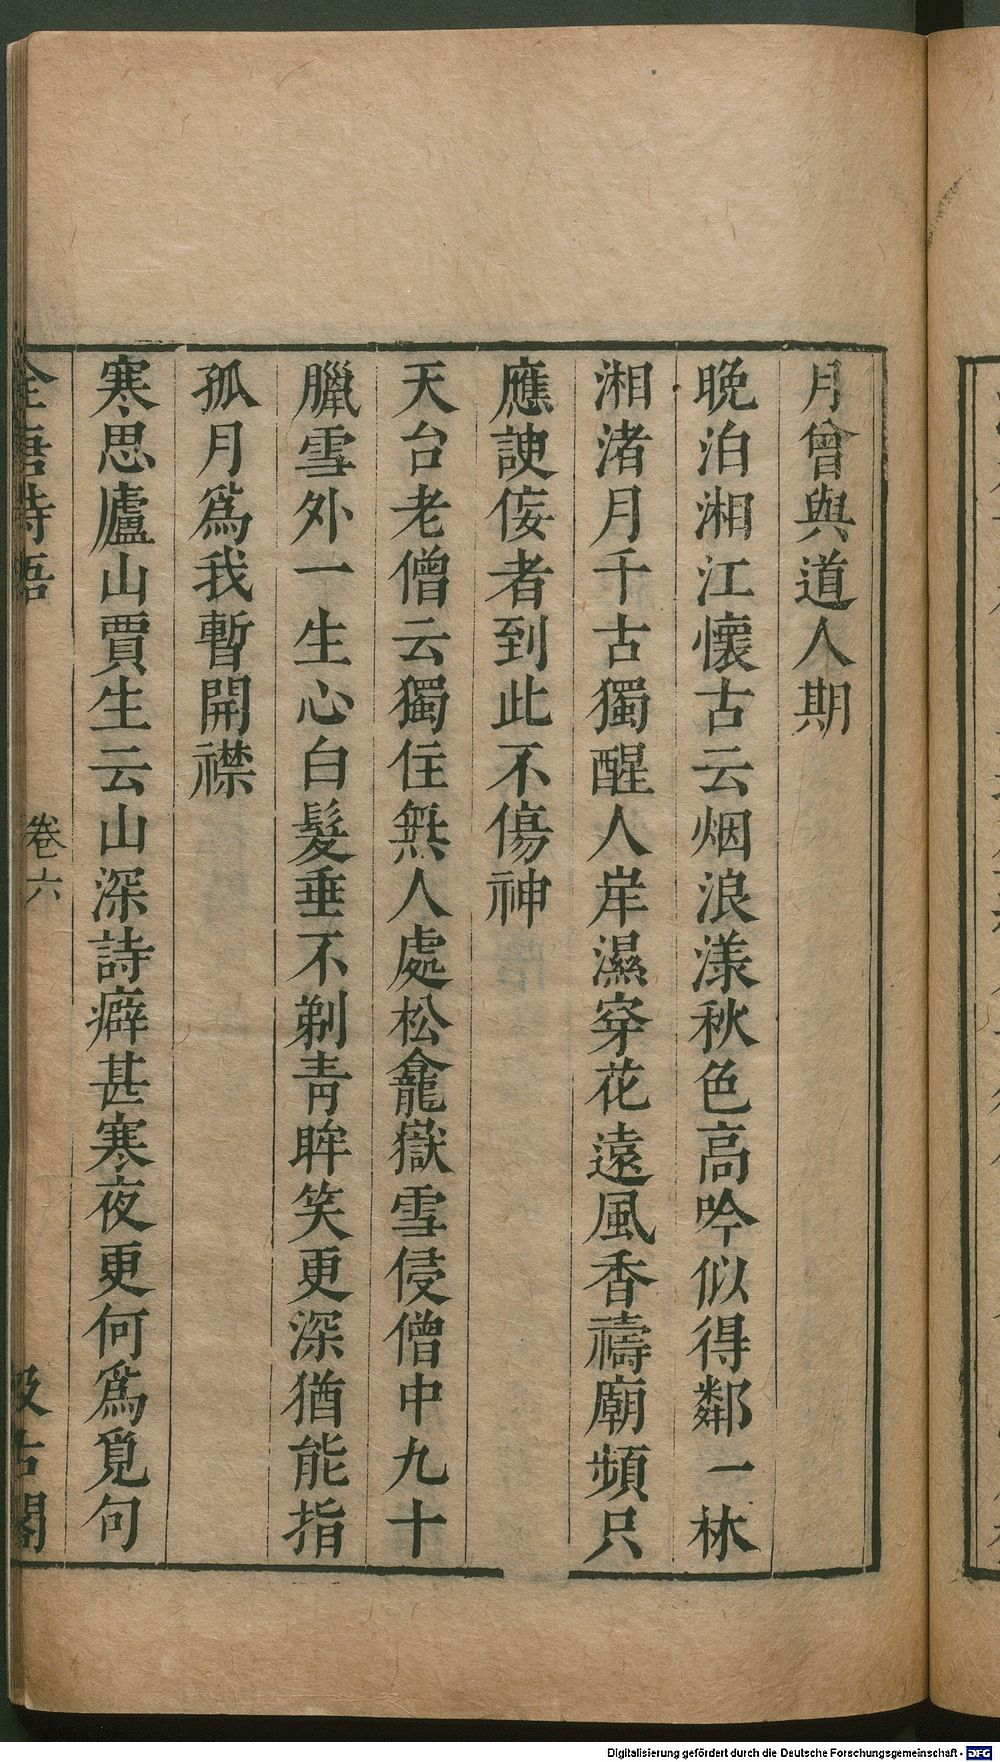 月曾與道人期
晚泊湘江懷古云烟浪漾秋色高吟似得鄰一林
湘渚月千古獨醒人岸濕穿花遠風香禱廟頻只
應諛佞者到此不傷神
天台老僧云獨住無人處松龕嶽雪侵僧中九十
臘雪外一生心白髮垂不剃青眸笑更深猶能指
孤月爲我暫開襟
寒思廬山賈生云山深詩癖甚寒夜更何爲覓句
全唐詩話
卷六
汲古閣
Digitalisierung gefördert durch die Deutsche Forschungsgemeinschaft - DFG